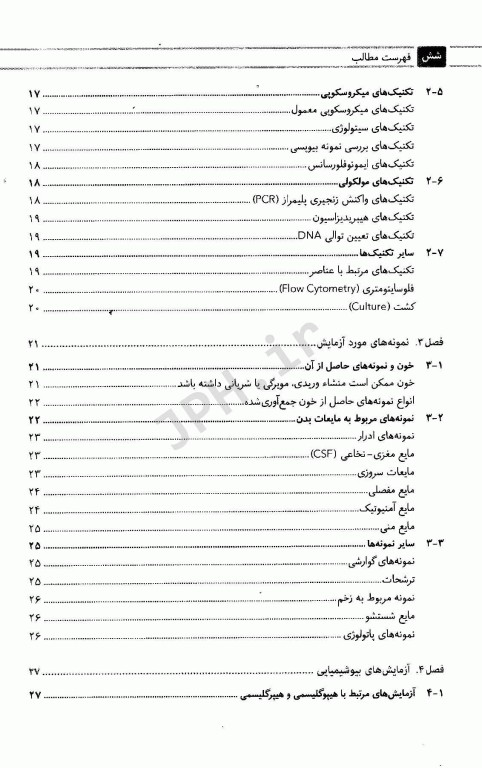 شش فهرست مطالب
۲-۵ تکنیک‌های میکروسکوپی ۱۷
تکنیک‌های میکروسکوپی معمول ۱۷
تکنیک‌های سیتولوژی ۱۷
تکنیک‌های بررسی نمونه بیوپسی ۱۷
تکنیک‌های ایمونوفلورسانس ۱۸
۲-۶ تکنیک‌های مولکولی ۱۸
تکنیک‌های واکنش زنجیری پلیمراز (PCR) ۱۸
تکنیک‌های هیبریدیزاسیون ۱۹
تکنیک‌های تعیین توالی DNA ۱۹
۲-۷ سایر تکنیک‌ها ۱۹
تکنیک‌های مرتبط با عناصر ۱۹
فلوسایتومتری (Flow Cytometry) ۲۰
کشت (Culture) ۲۰
فصل ۳. نمونه‌های مورد آزمایش ۲۱
۳-۱ خون و نمونه‌های حاصل از آن ۲۱
خون ممکن است منشاء وریدی، مویرگی یا شریانی داشته باشد ۲۱
انواع نمونه‌های حاصل از خون جمع‌آوری‌شده ۲۲
۳-۲ نمونه‌های مربوط به مایعات بدن ۲۲
نمونه‌های ادرار ۲۳
مایع مغزی-نخاعی (CSF) ۲۳
مایعات سروزی ۲۳
مایع مفصلی ۲۴
مایع آمنیوتیک ۲۴
مایع منی ۲۵
۳-۳ سایر نمونه‌ها ۲۵
نمونه‌های گوارشی ۲۵
ترشحات ۲۵
نمونه مربوط به زخم ۲۶
مایع شستشو ۲۶
نمونه‌های پاتولوژی ۲۶
فصل ۴. آزمایش‌های بیوشیمیایی ۲۷
۴-۱ آزمایش‌های مرتبط با هیپوگلیسمی و هیپرگلیسمی ۲۷
JPH.ir